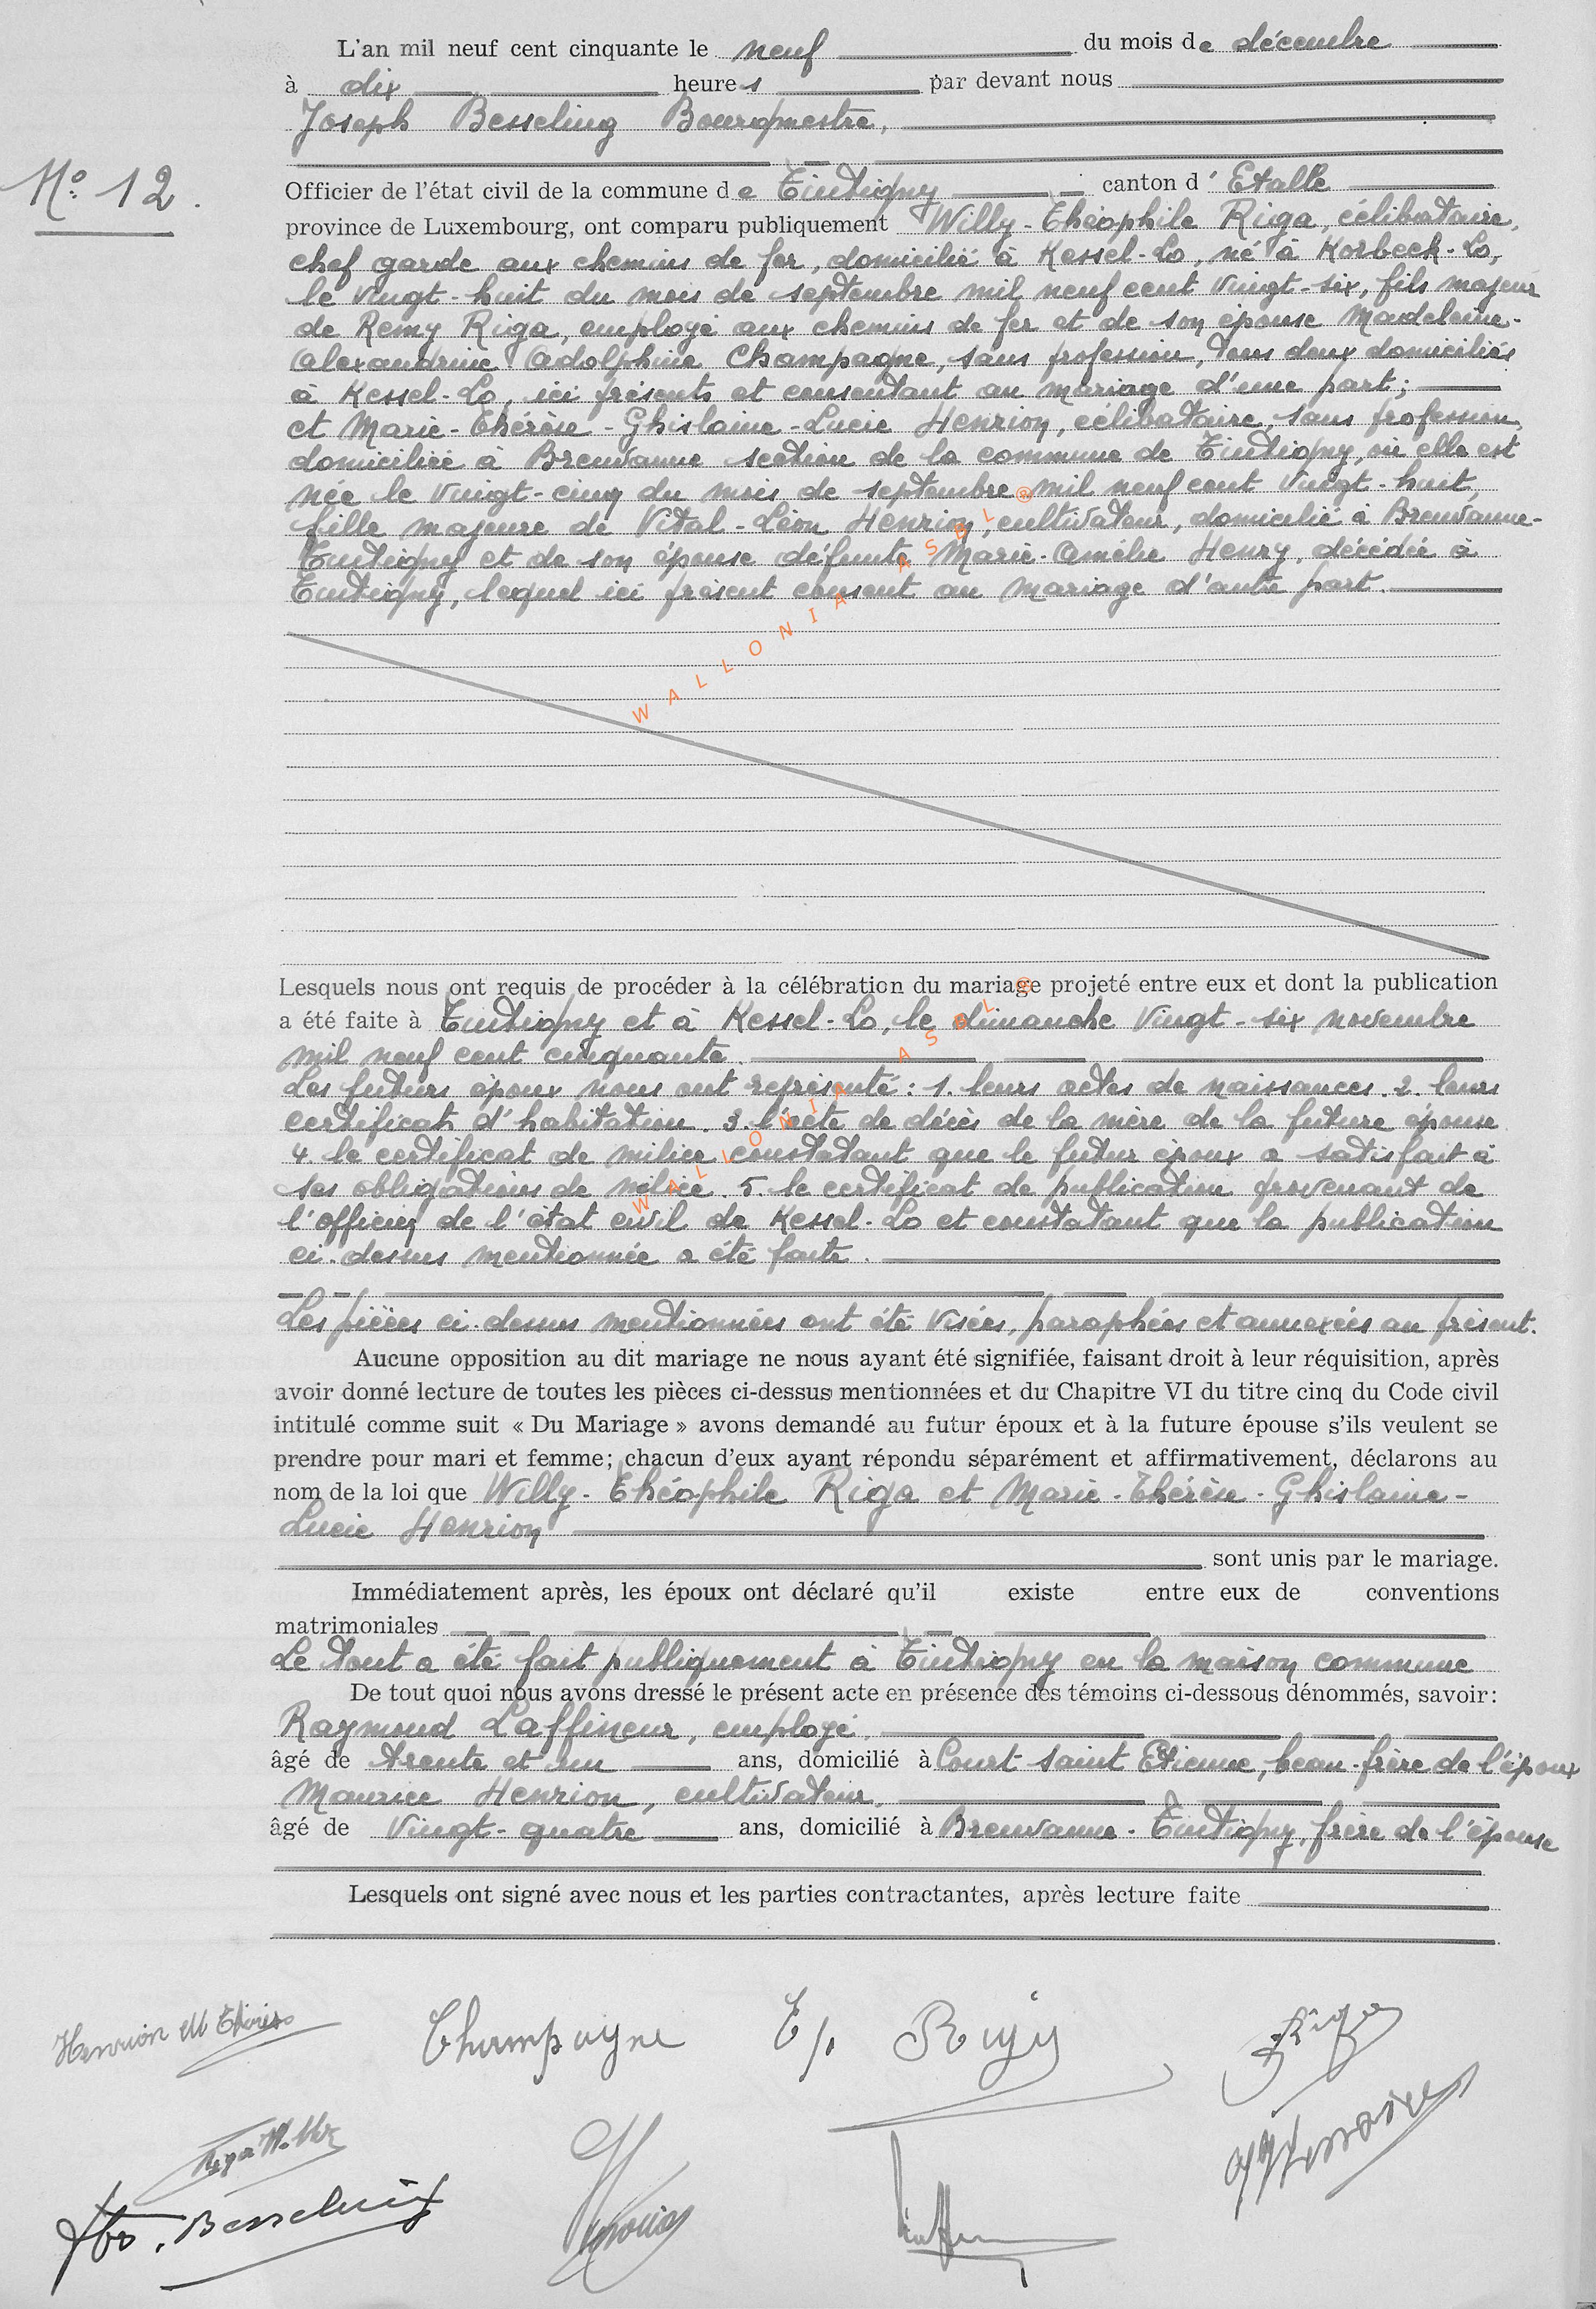 L'an mil neuf cent cinquante le neuf du mois de décembre
à dix heures par devant nous
Joseph Besseling Bourgmestre,
No: 12.
Officier de l'état civil de la commune de Tintigny canton d'Etalle
province de Luxembourg, ont comparu publiquement Willy-Théophile Riga, célibataire,
chef garde aux chemins de fer, domicilié à Kessel-Lo, né à Korbeek-Lo,
le vingt-huit du mois de septembre mil neuf cent vingt-six, fils majeur
de Remy Riga, employé aux chemins de fer et de son épouse Madeleine-
Alexandrine Adolphine Champagne, sans profession, tous deux domiciliés
à Kessel-Lo, ici présents et consentant au mariage d'une part;
et Marie-Thérèse-Ghislaine-Lucie Henrion, célibataire, sans profession,
domiciliée à Breuvanne section de la commune de Tintigny, où elle est
née le vingt-cinq du mois de septembre mil neuf cent vingt-huit,
fille majeure de Vital-Léon Henrion, cultivateur, domicilié à Breuvanne-
Tintigny et de son épouse défunte Marie-Amélie Henry, décédée à
Tintigny, lequel ici présent consent au mariage d'autre part.
WALLONIA ASBL ®
Lesquels nous ont requis de procéder à la célébration du mariage projeté entre eux et dont la publication
a été faite à Tintigny et à Kessel-Lo, le dimanche vingt-six novembre
mil neuf cent cinquante.
Les futurs époux nous ont représenté: 1. leurs actes de naissances. 2. leurs
certificats d'habitation. 3. l'acte de décès de la mère de la future épouse
4. le certificat de milice constatant que le futur époux a satisfait à
ses obligations de milice. 5. le certificat de publication provenant de
l'officier de l'état civil de Kessel-Lo et constatant que la publication
ci-dessus mentionnée a été faite.
WALLONIA ASBL ®
Les pièces ci-dessus mentionnées ont été visées, paraphées et annexées au présent.
Aucune opposition au dit mariage ne nous ayant été signifiée, faisant droit à leur réquisition, après
avoir donné lecture de toutes les pièces ci-dessus mentionnées et du Chapitre VI du titre cinq du Code civil
intitulé comme suit « Du Mariage » avons demandé au futur époux et à la future épouse s'ils veulent se
prendre pour mari et femme; chacun d'eux ayant répondu séparément et affirmativement, déclarons au
nom de la loi que Willy-Théophile Riga et Marie-Thérèse-Ghislaine-
Lucie Henrion
sont unis par le mariage.
Immédiatement après, les époux ont déclaré qu'il existe entre eux de conventions
matrimoniales
Le tout a été fait publiquement à Tintigny en la maison commune
De tout quoi nous avons dressé le présent acte en présence des témoins ci-dessous dénommés, savoir:
Raymond Laffineur, employé,
âgé de trente et un ans, domicilié à Court Saint Etienne, beau-frère de l'époux
Maurice Henrion, cultivateur,
âgé de vingt-quatre ans, domicilié à Breuvanne-Tintigny, frère de l'épouse
Lesquels ont signé avec nous et les parties contractantes, après lecture faite
Henrion M Thérèse Champagne Ep. Riga Riga
Riga W. Henrion
Jos. Besseling Henrion Laff